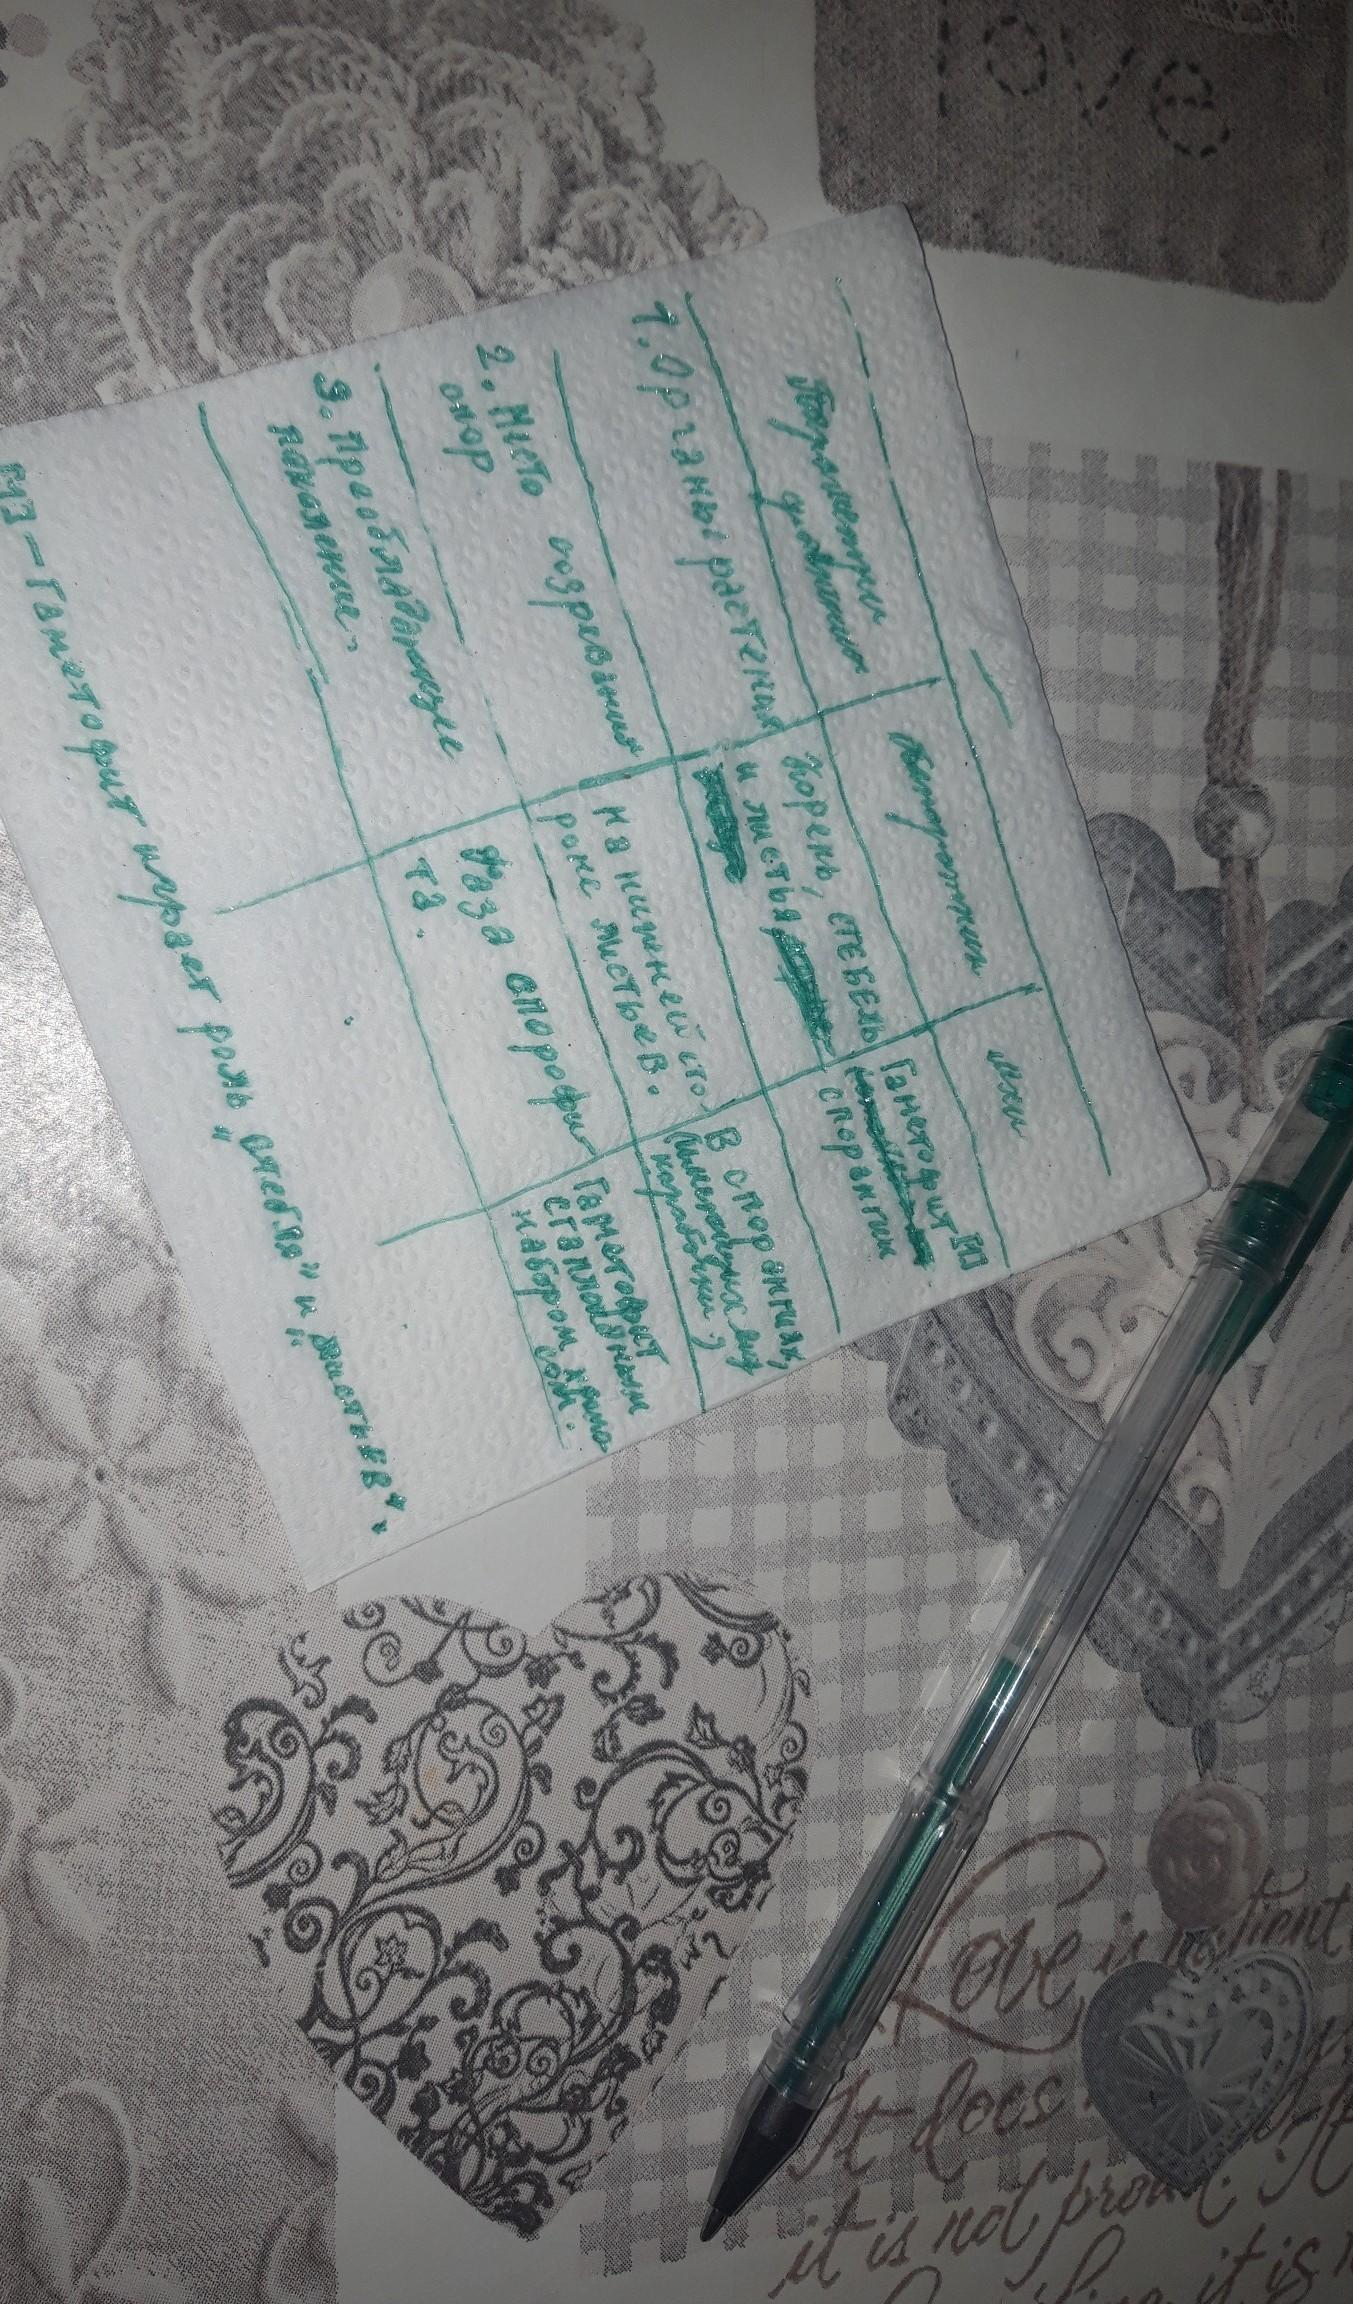 Параметры
сравнения
Папоротники
Мхи
1. Органы растения
Корень, стебель
и листья
Гаметофит [1]
спорангии
2. Место созревания
спор
На нижней сто
роне листьев.
В спорангиях,
(имеющих вид
коробочки)
3. Преобладающее
поколение.
Фаза спорофи
та.
Гаметофит
с гаплоидным
набором хромо
сом.
[1] - Гаметофит играет роль „стебля" и „листьев".
ove
Love is patient
It does
it is not proud. It
it is